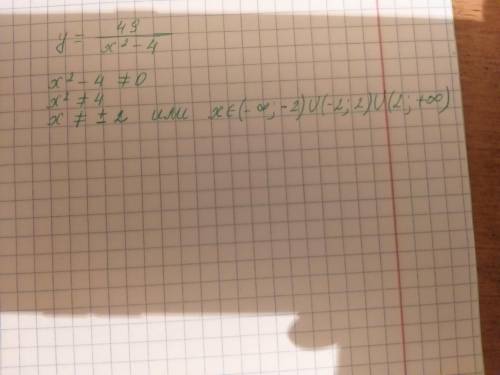 y = 49 / x² - 4
x² - 4 ≠ 0
x² ≠ 4
x ≠ ± 2 или x ∈ (-∞; -2) ∪ (-2; 2) ∪ (2; +∞)